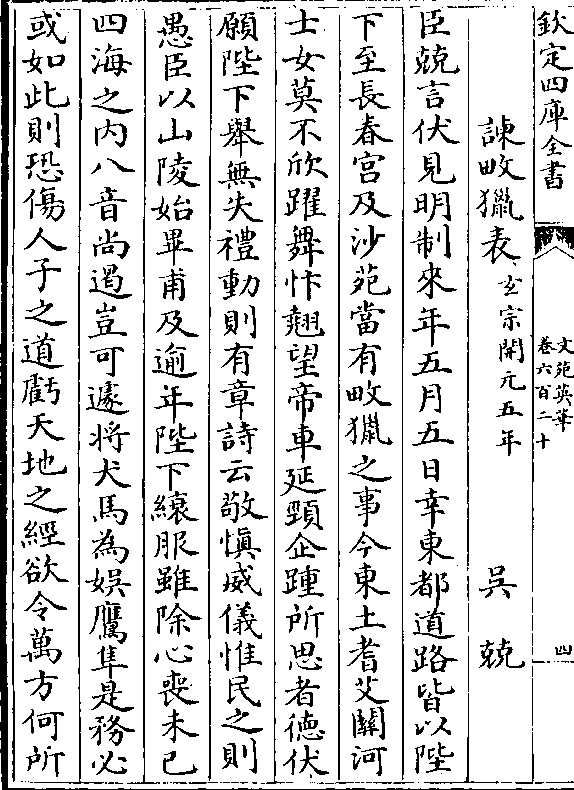 欽定四庫全書
文苑英華
卷六百二十
四
諫畋獵表 玄宗開元五年 吳兢
臣兢言伏見明制來年五月五日幸東都道路皆以陛
下至長春宮及沙苑當有畋獵之事今東土耆艾關河
士女莫不欣躍舞忭翹望帝車延頸企踵所思者德伏
願陛下舉無失禮動則有章詩云敬慎威儀惟民之則
愚臣以山陵始畢甫及逾年陛下縗服雖除心喪未已
四海之內八音尚遏豈可遽將犬馬為娯鷹隼是務必
或如此則恐傷人子之道虧天地之經欲令萬方何所